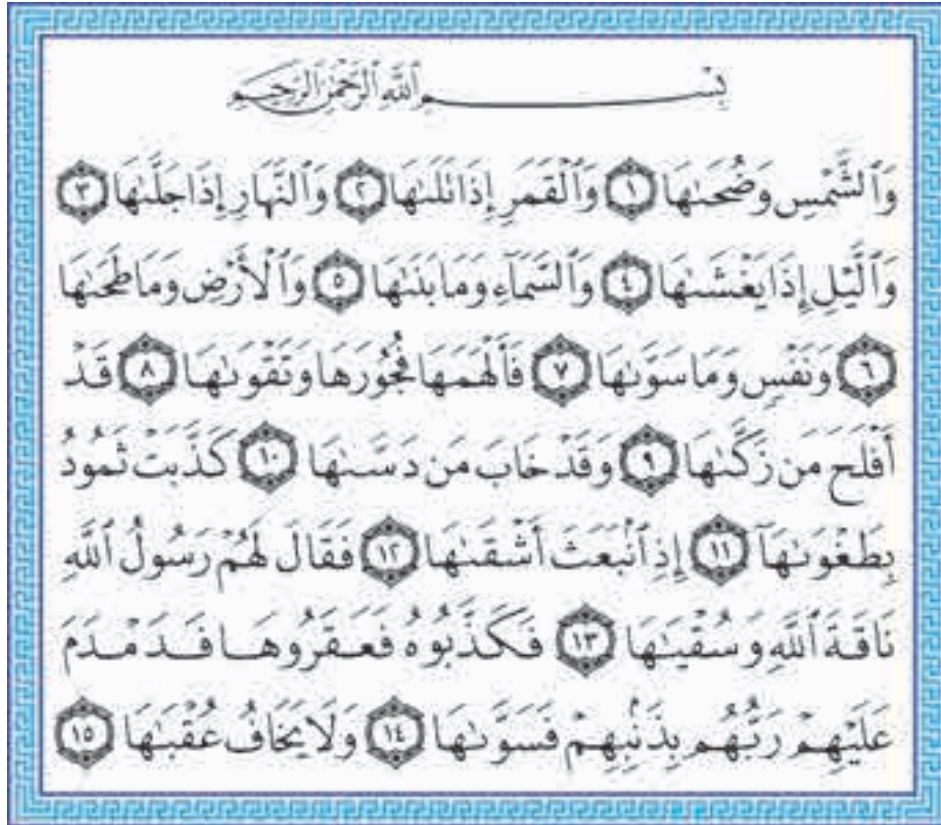 بِسْمِ ٱللَّهِ ٱلرَّحْمَٰنِ ٱلرَّحِيمِ
وَٱلشَّمْسِ وَضُحَىٰهَا ١ وَٱلْقَمَرِ إِذَا تَلَىٰهَا ٢ وَٱلنَّهَارِ إِذَا جَلَّىٰهَا ٣
وَٱلَّيْلِ إِذَا يَغْشَىٰهَا ٤ وَٱلسَّمَآءِ وَمَا بَنَىٰهَا ٥ وَٱلْأَرْضِ وَمَا طَحَىٰهَا
٦ وَنَفْسٍ وَمَا سَوَّىٰهَا ٧ فَأَلْهَمَهَا فُجُورَهَا وَتَقْوَىٰهَا ٨ قَدْ
أَفْلَحَ مَن زَكَّىٰهَا ٩ وَقَدْ خَابَ مَن دَسَّىٰهَا ١٠ كَذَّبَتْ ثَمُودُ
بِطَغْوَىٰهَآ ١١ إِذِ ٱنۢبَعَثَ أَشْقَىٰهَا ١٢ فَقَالَ لَهُمْ رَسُولُ ٱللَّهِ
نَاقَةَ ٱللَّهِ وَسُقْيَـٰهَا ١٣ فَكَذَّبُوهُ فَعَقَرُوهَا فَدَمْدَمَ
عَلَيْهِمْ رَبُّهُم بِذَنۢبِهِمْ فَسَوَّىٰهَا ١٤ وَلَا يَخَافُ عُقْبَـٰهَا ١٥